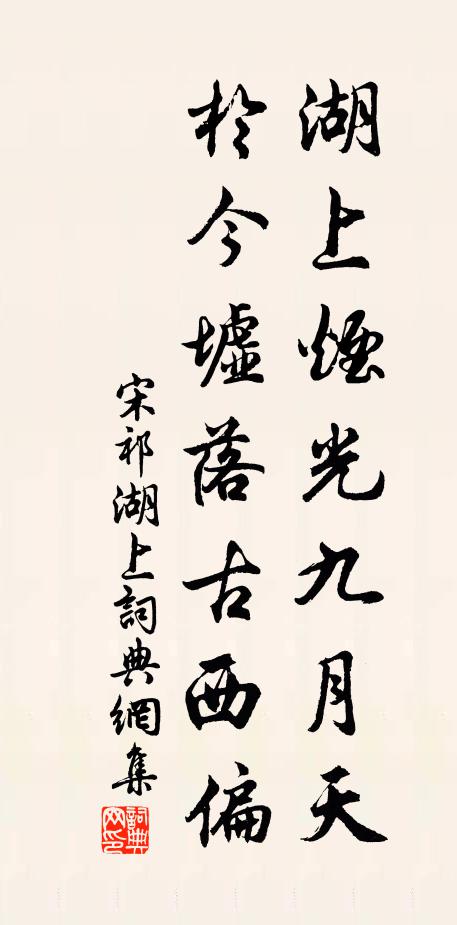 湖上煙光九月天
於今墟落古西偏
宋祁湖上詞典網集
詞典網印